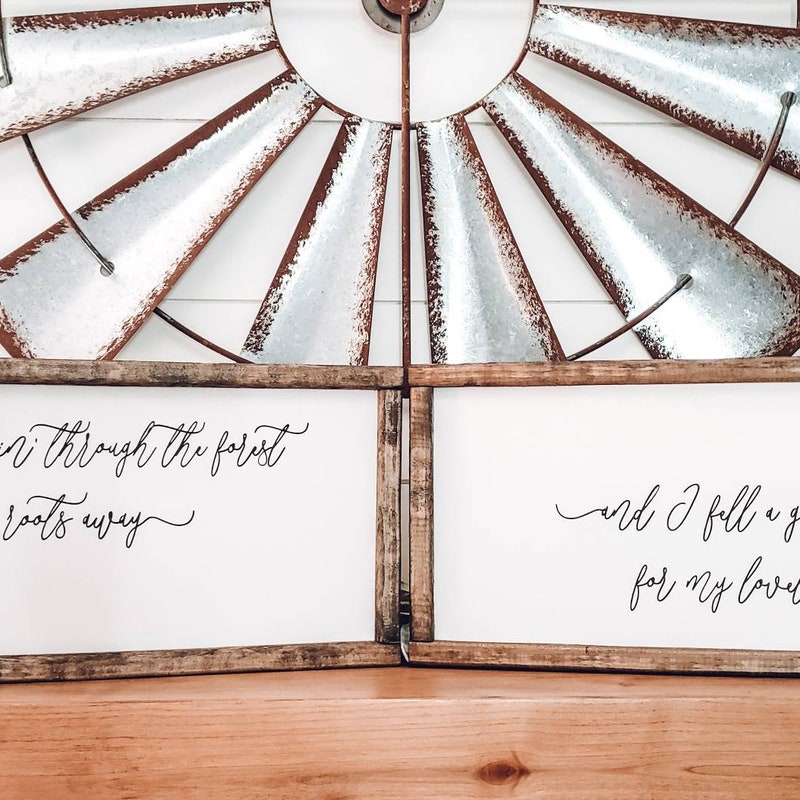 in' through the forest
roots away
and I fell a g
for my love